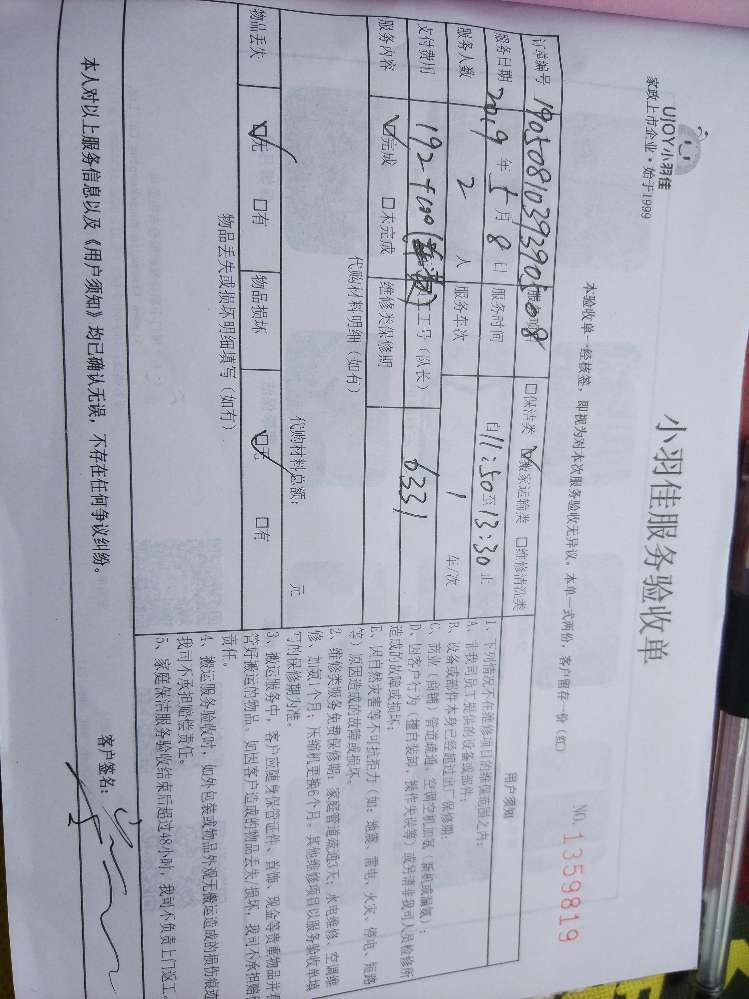 UJOY小羽佳
家政上市企业·始于1999
小羽佳服务验收单
NO.1359819
本验收单一经核签，即视为对本次服务验收无异议。本单一式两份，客户留存一份（红）
订单编号 190508103939050508 □保洁类 ☑搬家运输类 □维修清洗类
服务日期 2019年5月8日 服务时间 自11:50至13:30止
服务人数 2人 服务车次 1车/次
支付费用 192+100 工号（队长） 6331
服务内容 ☑完成 □未完成 维修类保修期
代购材料明细（如有）
代购材料总额： 元
物品丢失 ☑无 □有 物品损坏 ☑无 □有
物品丢失或损坏明细填写（如有）
用户须知
1、下列情况不在维修项目的维保范围之内：
A、非我司员工提供的设备或部件；
B、设备或部件本身已经超过出厂保修期；
C、商业（商铺）管道疏通、空调空机加氨（新机或漏氨）；
D、因客户行为（擅自装卸、操作失误等）或另请非我司人员检修所
造成的故障或损坏；
E、因自然灾害等不可抗拒力（如：地震、雷电、火灾、停电、短路
等）原因造成的故障或损坏。
2、维修类服务免费保修期：家庭管道疏通3天；水电维修、空调维
修、加氨1个月；压缩机更换6个月。其他维修项目以服务验收单填
写的保修期为准。
3、搬运服务中，客户应随身保管证件、首饰、现金等贵重物品并看
管好搬运的物品。如因客户造成的物品丢失/损坏，我司不承担赔偿
责任。
4、搬运服务验收时，如外包装或物品外观无搬运造成的损伤痕迹
我司不承担赔偿责任。
5、家庭保洁服务验收结束后超过48小时，我司不负责上门返工。
本人对以上服务信息以及《用户须知》均已确认无误，不存在任何争议纠纷。
客户签名：